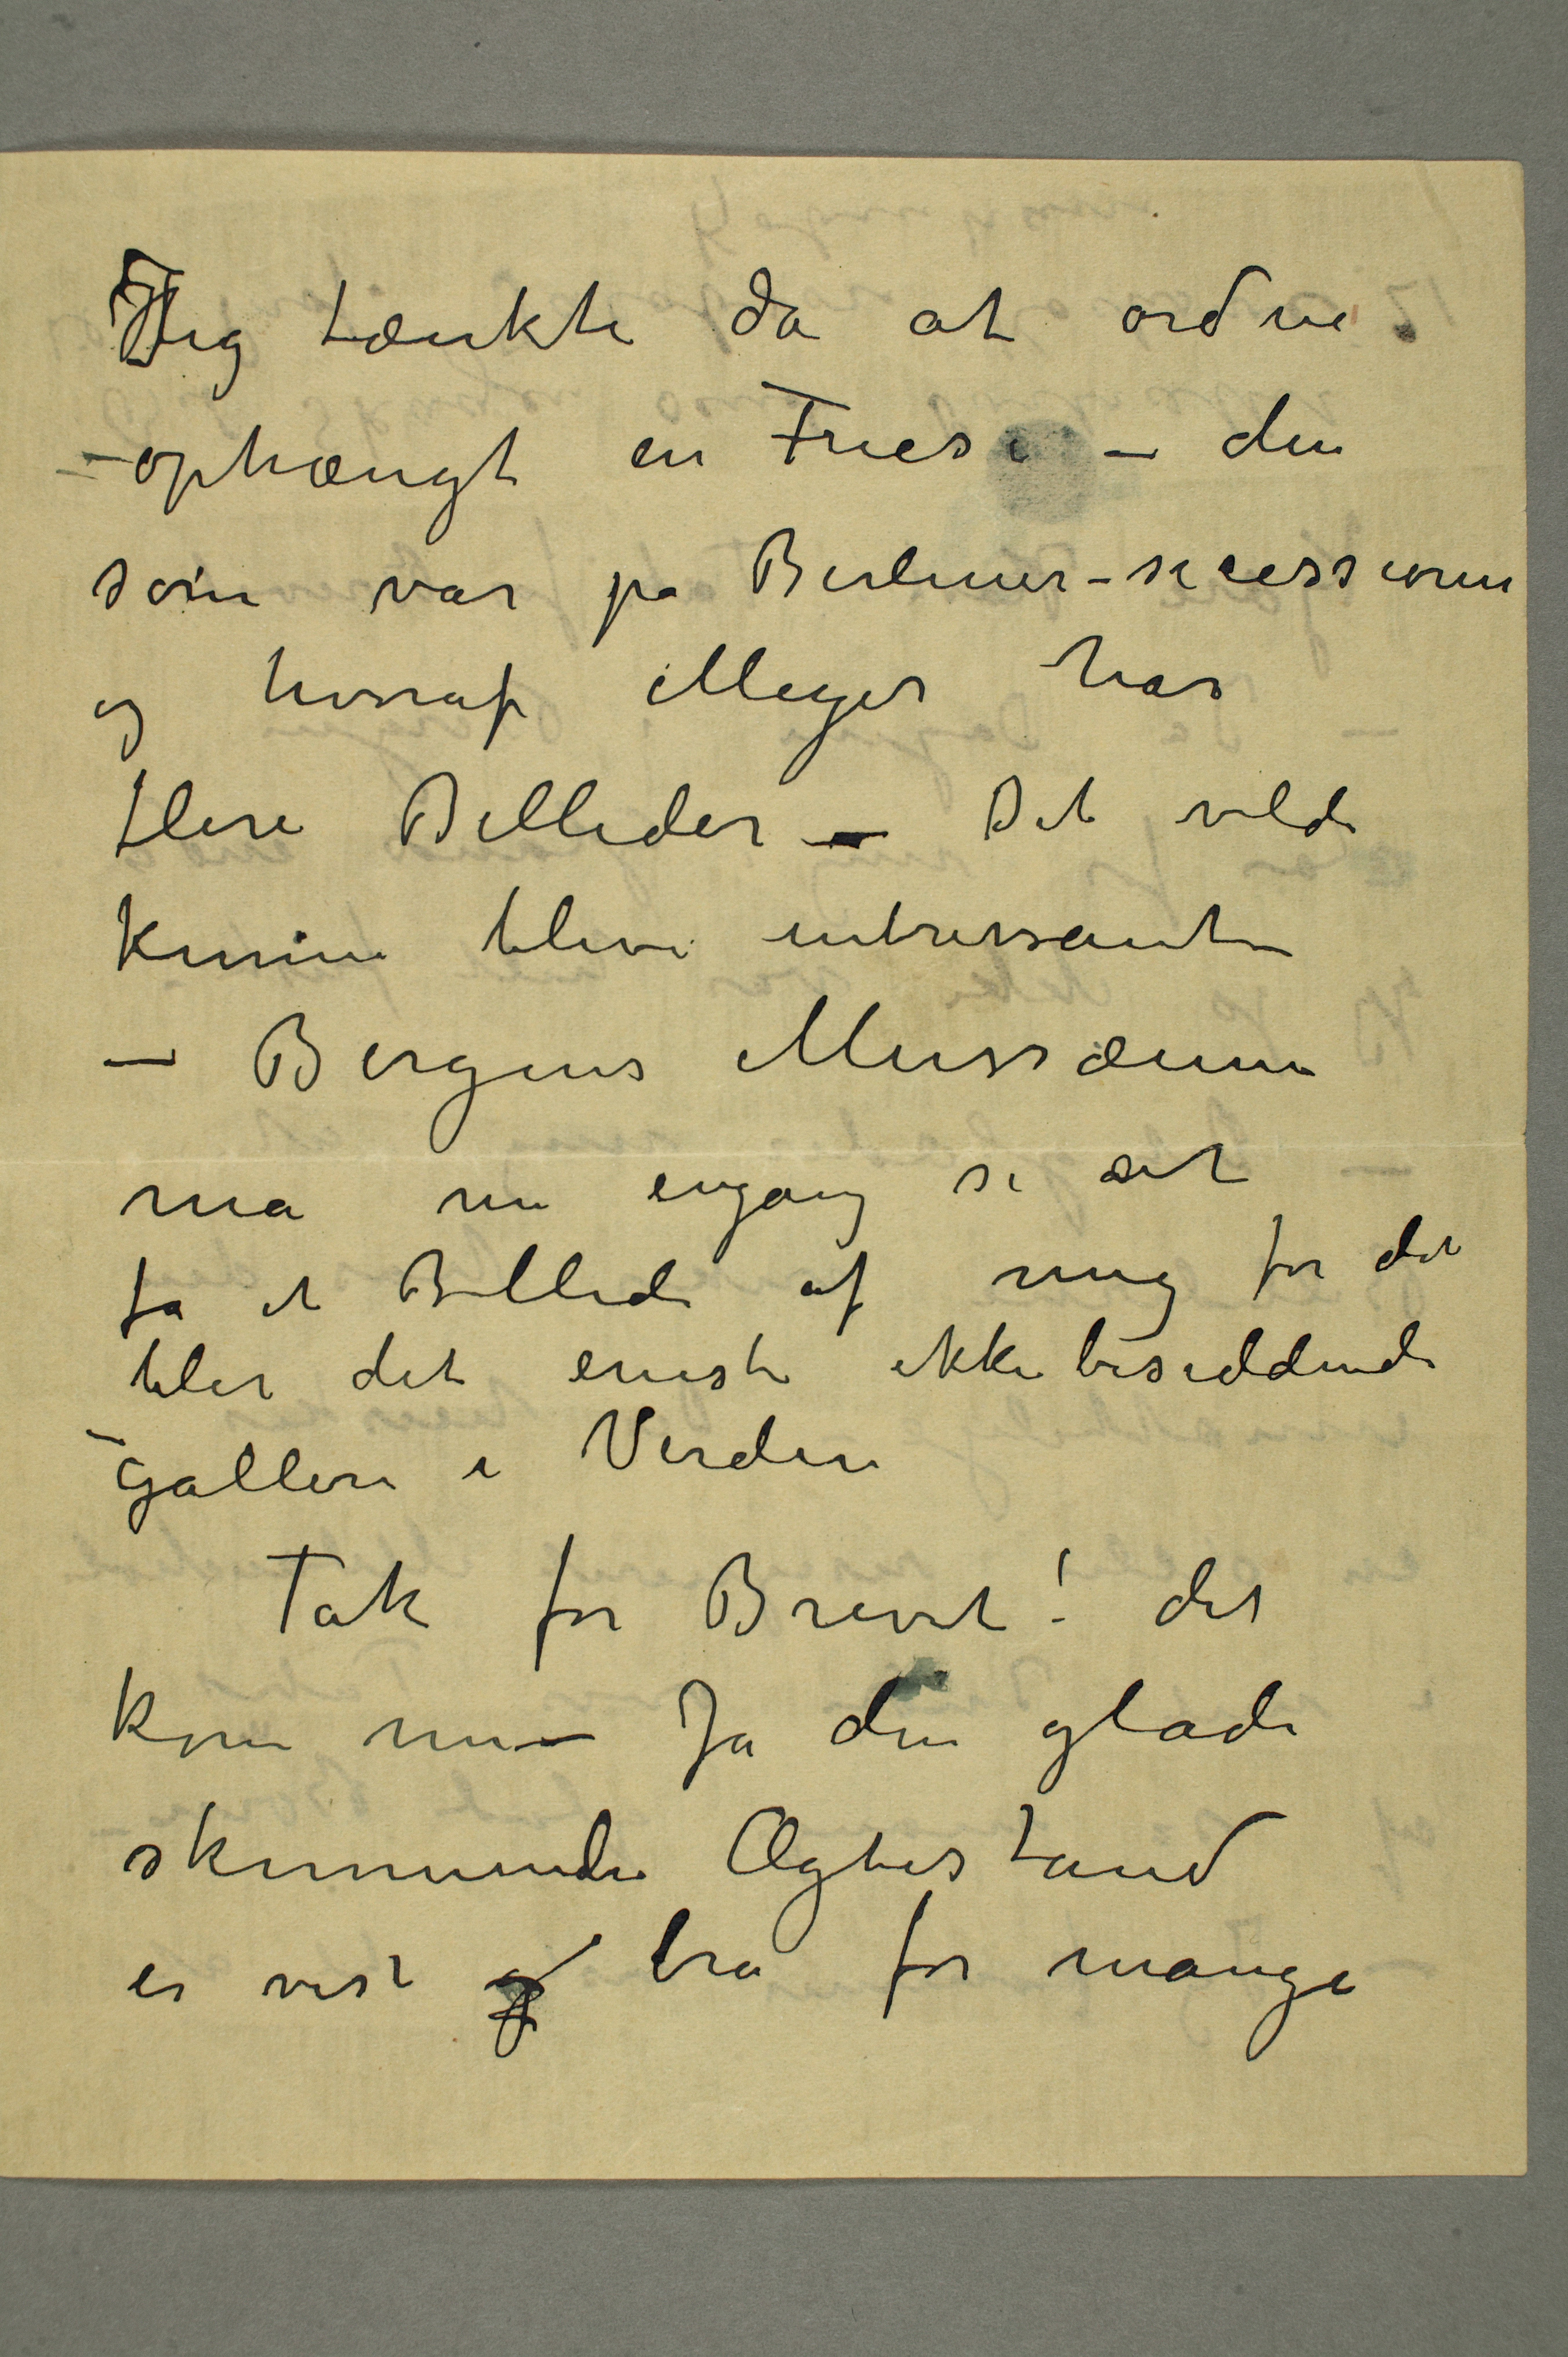 Jeg tænkte da at ordne
– ophængt en Frese – den
som var på Berliner-secessionen
og hvoraf Meyer har
flere Billeder – Det vilde
kunne blive intressant –
– Bergens Mussæum
må nu engang se at
få et Billede af mig for det
blir det eneste ikkebesiddende
Galleri i Verden
Tak for Brevet! det
kom nu – Ja den glade
skummende Ægtestand
er vist bra for mange